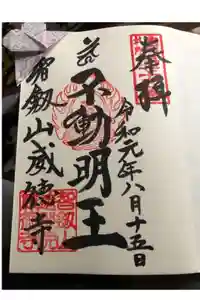 奉拝
令和元年八月十五日
不動明王
智剱山威徳寺